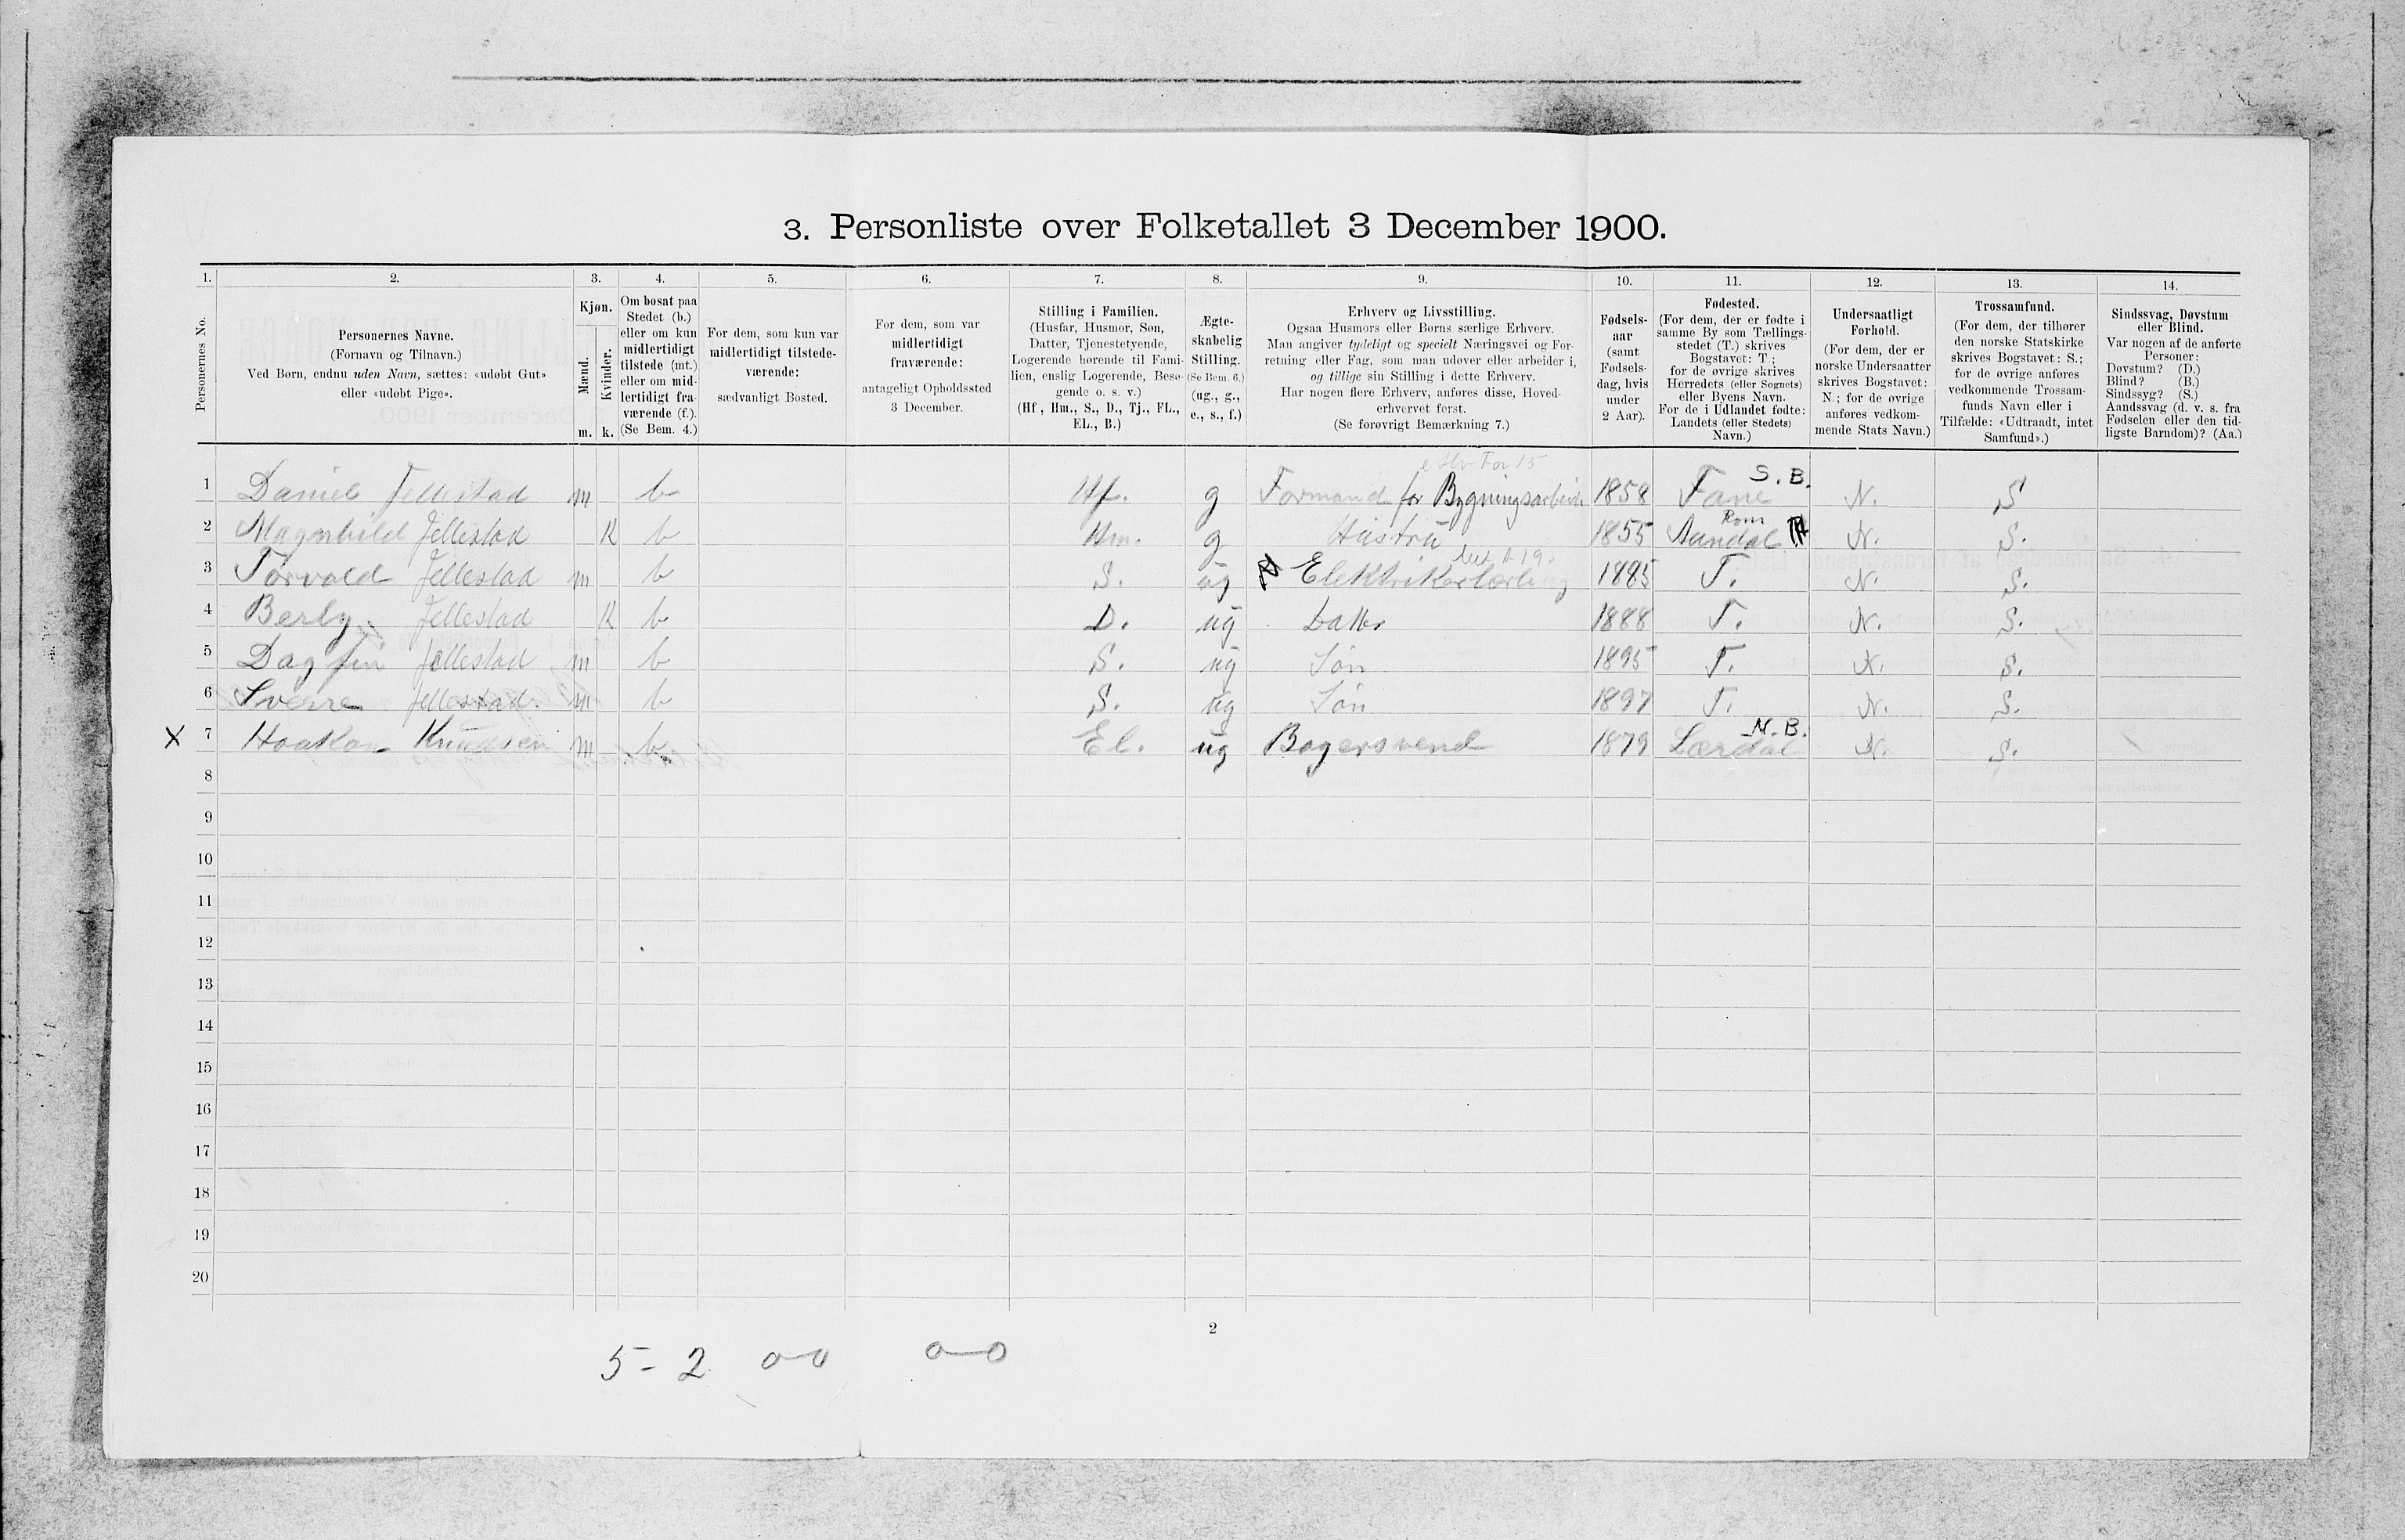 3. Personliste over Folketallet 3 December 1900.
1. 2. 3. 4. 5. 6. 7. 8. 9. 10. 11. 12. 13. 14.
Personernes No.
Personernes Navne.
(Fornavn og Tilnavn.)
Ved Børn, endnu uden Navn, sættes: «udøbt Gut»
eller «udøbt Pige».
Kjøn.
Mænd.
Kvinder.
m. k.
Om bosat paa
Stedet (b.)
eller om kun
midlertidigt
tilstede (mt.)
eller om mid-
lertidigt fra-
værende (f.).
(Se Bem. 4.)
For dem, som kun var
midlertidigt tilstede-
værende:
sædvanligt Bosted.
For dem, som var
midlertidigt
fraværende:
antageligt Opholdssted
3 December.
Stilling i Familien.
(Husfar, Husmor, Søn,
Datter, Tjenestetyende,
Logerende hørende til Fami-
lien, enslig Logerende, Besø-
gende o. s. v.)
(Hf., Hm., S., D., Tj., FL.,
EL., B.)
Ægte-
skabelig
Stilling.
(Se Bem. 6.)
(ug., g.,
e., s., f.)
Erhverv og Livsstilling.
Ogsaa Husmors eller Børns særlige Erhverv.
Man angiver tydeligt og specielt Næringsvei og For-
retning eller Fag, som man udøver eller arbeider i,
og tillige sin Stilling i dette Erhverv.
Har nogen flere Erhverv, anføres disse, Hoved-
erhvervet først.
(Se forøvrigt Bemærkning 7.)
Fødsels-
aar
(samt
Fødsels-
dag, hvis
under
2 Aar).
Fødested.
(For dem, der er fødte i
samme By som Tællings-
stedet (T.) skrives
Bogstavet: T;
for de øvrige skrives
Herredets (eller Sognets)
eller Byens Navn.
For de i Udlandet fødte:
Landets (eller Stedets)
Navn.)
Undersaatligt
Forhold.
(For dem, der er
norske Undersaatter
skrives Bogstavet:
N.; for de øvrige
anføres vedkom-
mende Stats Navn.)
Trossamfund.
(For dem, der tilhører
den norske Statskirke
skrives Bogstavet: S.;
for de øvrige anføres
vedkommende Trossam-
funds Navn eller i
Tilfælde: «Udtraadt, intet
Samfund».)
Sindssvag, Døvstum
eller Blind.
Var nogen af de anførte
Personer:
Døvstum? (D.)
Blind? (B.)
Sindssyg? (S.)
Aandssvag (d. v. s. fra
Fødselen eller den tid-
ligste Barndom)? (Aa.)
S. B.
1 Daniel Jellestad m b Hf. g Formand for Bygningsarbeide 1858 Fane N. S
2 Magnhild Jellestad K b Hm. g Hustru 1855 N. S.
3 Torvald Jellestad m b S. ug Elektrikerlærling 1885 T. N. S.
4 Jellestad K b D. ug Datter 1888 T. N. S.
5 Dagfin Jellestad m b S. ug Søn 1895 T. N. S.
6 Sverre Jellestad m b S. ug Søn 1897 T. N. S.
N. B.
X 7 Haakon Knudsen m b El. ug Bagersvend 1879 Lærdal N. S.
8
9
10
11
12
13
14
15
16
17
18
19
20
2
5 - 2 0-0 0-0